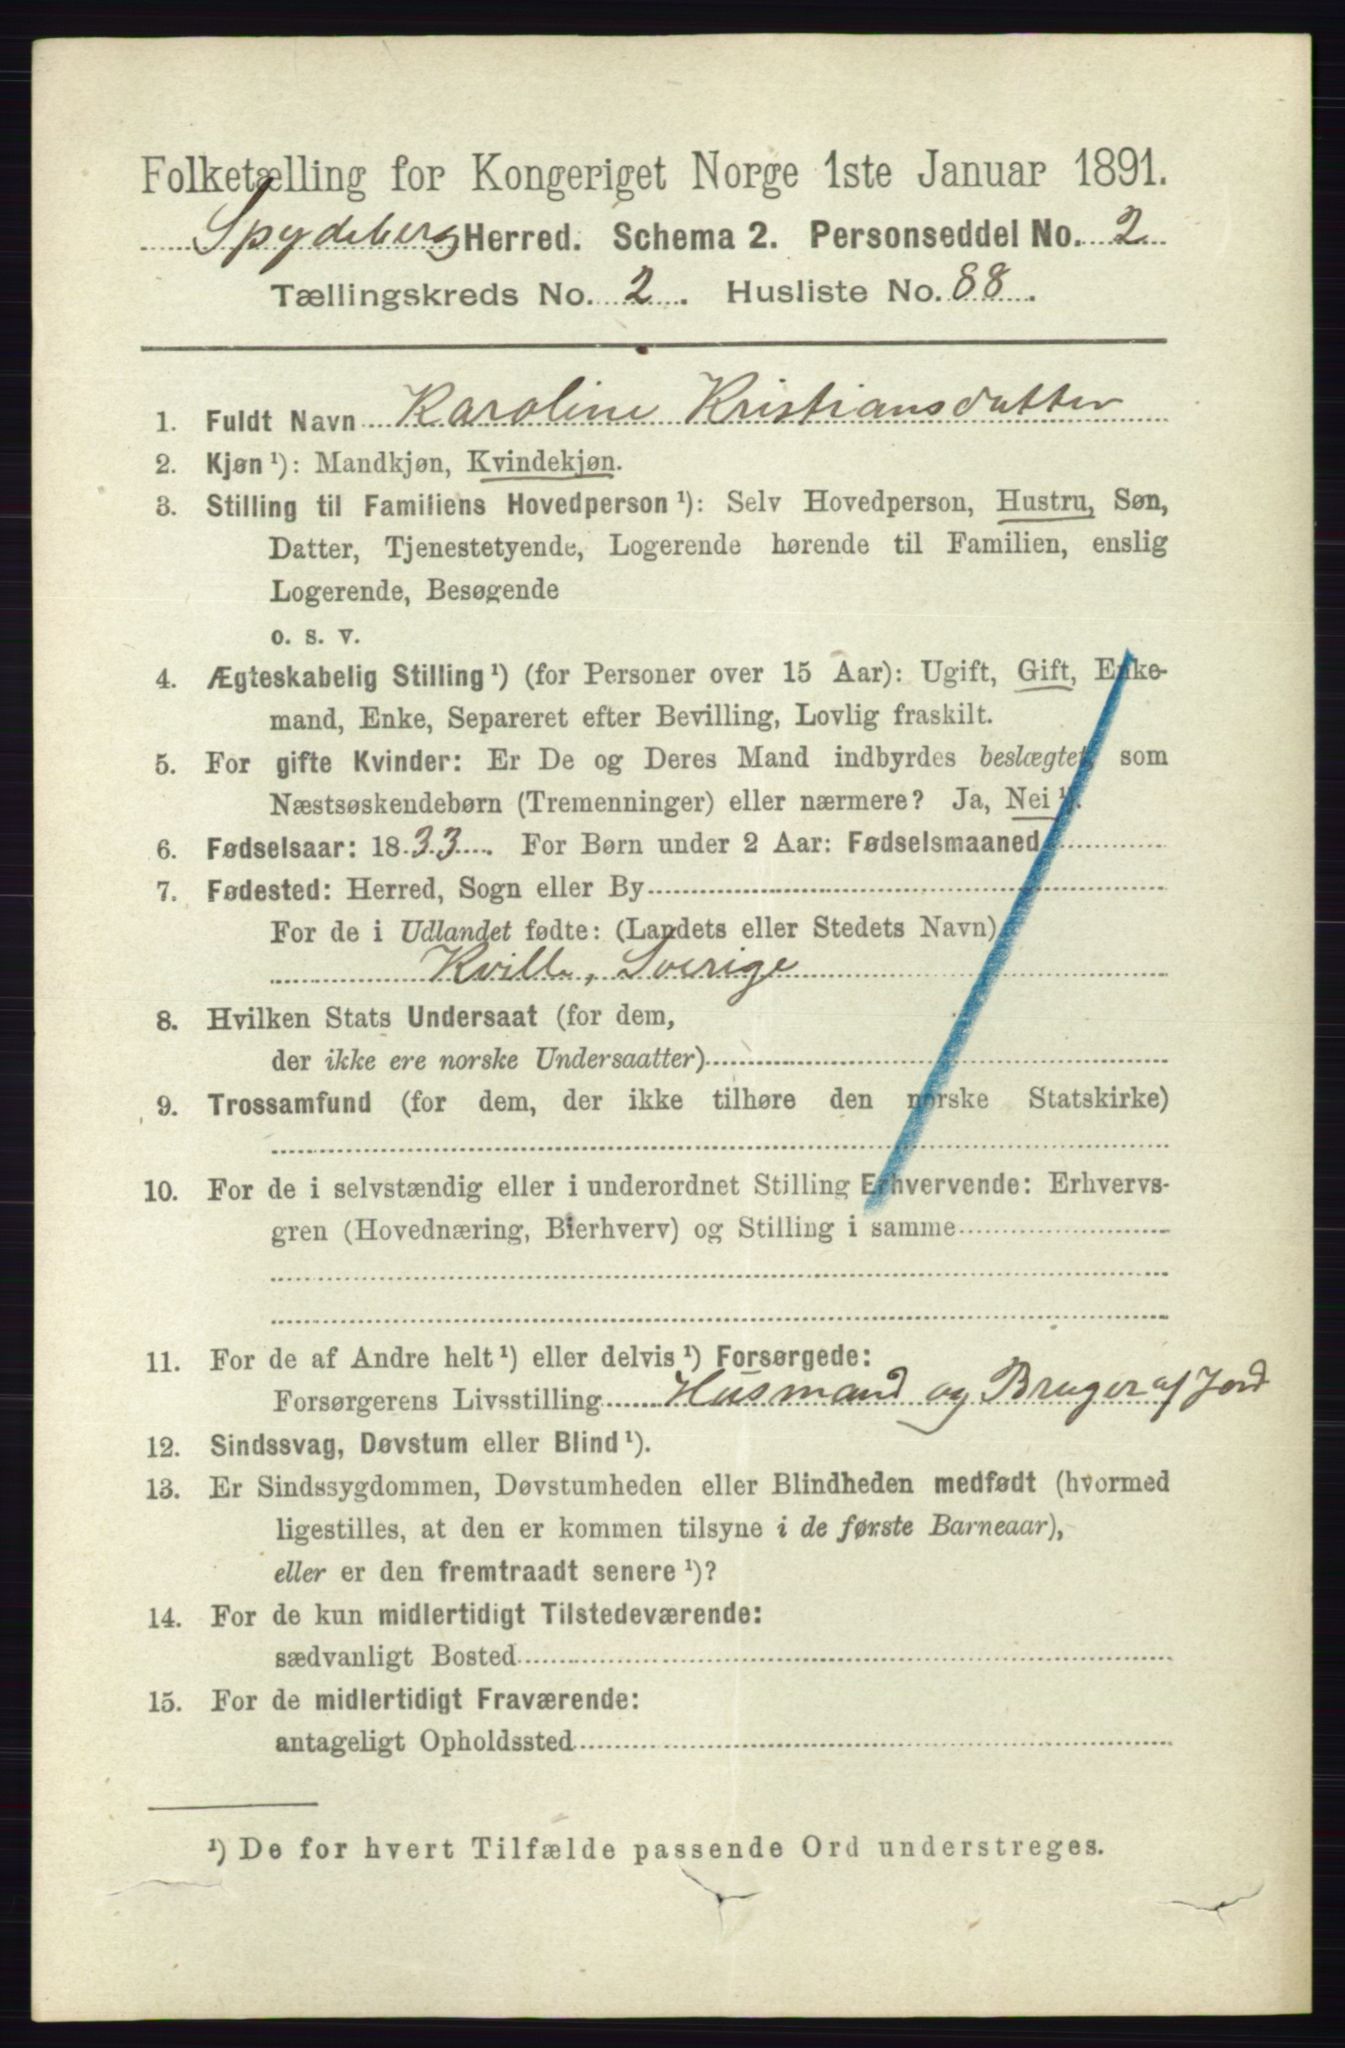 Folketælling for Kongeriget Norge 1ste Januar 1891.
Spydeberg Herred. Schema 2. Personseddel No. 2
Tællingskreds No. 2. Husliste No. 88.
1. Fuldt Navn Karoline Kristiansdatter
2. Kjøn ¹): Mandkjøn, Kvindekjøn.
3. Stilling til Familiens Hovedperson ¹): Selv Hovedperson, Hustru, Søn,
Datter, Tjenestetyende, Logerende hørende til Familien, enslig
Logerende, Besøgende
o. s. v.
4. Ægteskabelig Stilling ¹) (for Personer over 15 Aar): Ugift, Gift, Enke-
mand, Enke, Separeret efter Bevilling, Lovlig fraskilt.
5. For gifte Kvinder: Er De og Deres Mand indbyrdes beslægtet som
Næstsøskendebørn (Tremenninger) eller nærmere? Ja, Nei ¹).
6. Fødselsaar: 1833. For Børn under 2 Aar: Fødselsmaaned
7. Fødested: Herred, Sogn eller By
For de i Udlandet fødte: (Landets eller Stedets Navn)
Kville, Sverige
8. Hvilken Stats Undersaat (for dem,
der ikke ere norske Undersaatter)
9. Trossamfund (for dem, der ikke tilhøre den norske Statskirke)
10. For de i selvstændig eller i underordnet Stilling Erhvervende: Erhvervs-
gren (Hovednæring, Bierhverv) og Stilling i samme
11. For de af Andre helt ¹) eller delvis ¹) Forsørgede:
Forsørgerens Livsstilling Husmand og Bruger af Jord
12. Sindssvag, Døvstum eller Blind ¹).
13. Er Sindssygdommen, Døvstumheden eller Blindheden medfødt (hvormed
ligestilles, at den er kommen tilsyne i de første Barneaar),
eller er den fremtraadt senere ¹)?
14. For de kun midlertidigt Tilstedeværende:
sædvanligt Bosted
15. For de midlertidigt Fraværende:
antageligt Opholdssted
¹) De for hvert Tilfælde passende Ord understreges.